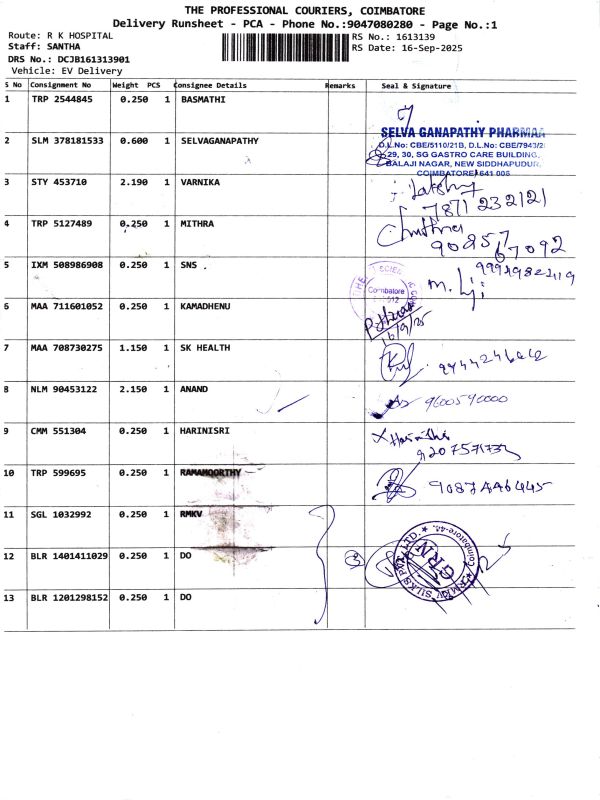 THE PROFESSIONAL COURIERS, COIMBATORE
Delivery Runsheet - PCA - Phone No.:9047080280 - Page No.:1
Route: R K HOSPITAL
RS No.: 1613139
Staff: SANTHA
RS Date: 16-Sep-2025
DRS No.: DCJB161313901
Vehicle: EV Delivery
S No Consignment No Weight PCS Consignee Details Remarks Seal & Signature
1 TRP 2544845 0.250 1 BASMATHI
SELVA GANAPATHY PHARMA
D.L.No: CBE/5110/21B, D.L.No: CBE/7943/2
29, 30, SG GASTRO CARE BUILDING,
BALAJI NAGAR, NEW SIDDHAPUDUR,
COIMBATORE-641 005
2 SLM 378181533 0.600 1 SELVAGANAPATHY
3 STY 453710 2.190 1 VARNIKA
7871232121
4 TRP 5127489 0.250 1 MITHRA
90257
67092
5 IXM 508986908 0.250 1 SNS
Coimbatore
6 MAA 711601052 0.250 1 KAMADHENU
16/9/25
7 MAA 708730275 1.150 1 SK HEALTH
8 NLM 90453122 2.150 1 ANAND
9600590000
9 CMM 551304 0.250 1 HARINISRI
10 TRP 599695 0.250 1 RAMAMOORTHY
9087446445
11 SGL 1032992 0.250 1 RMKV
12 BLR 1401411029 0.250 1 DO
3
RMKV SILKS PVT LTD
Coimbatore-4
GRN
13 BLR 1201298152 0.250 1 DO